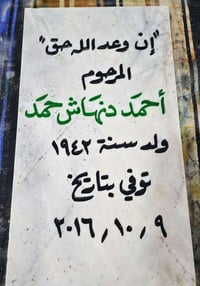 "إن وعد الله حق"
المرحوم
أحمد دنهاش حمد
ولد سنة ١٩٤٢
توفي بتاريخ
٢٠١٦/١٠/٩